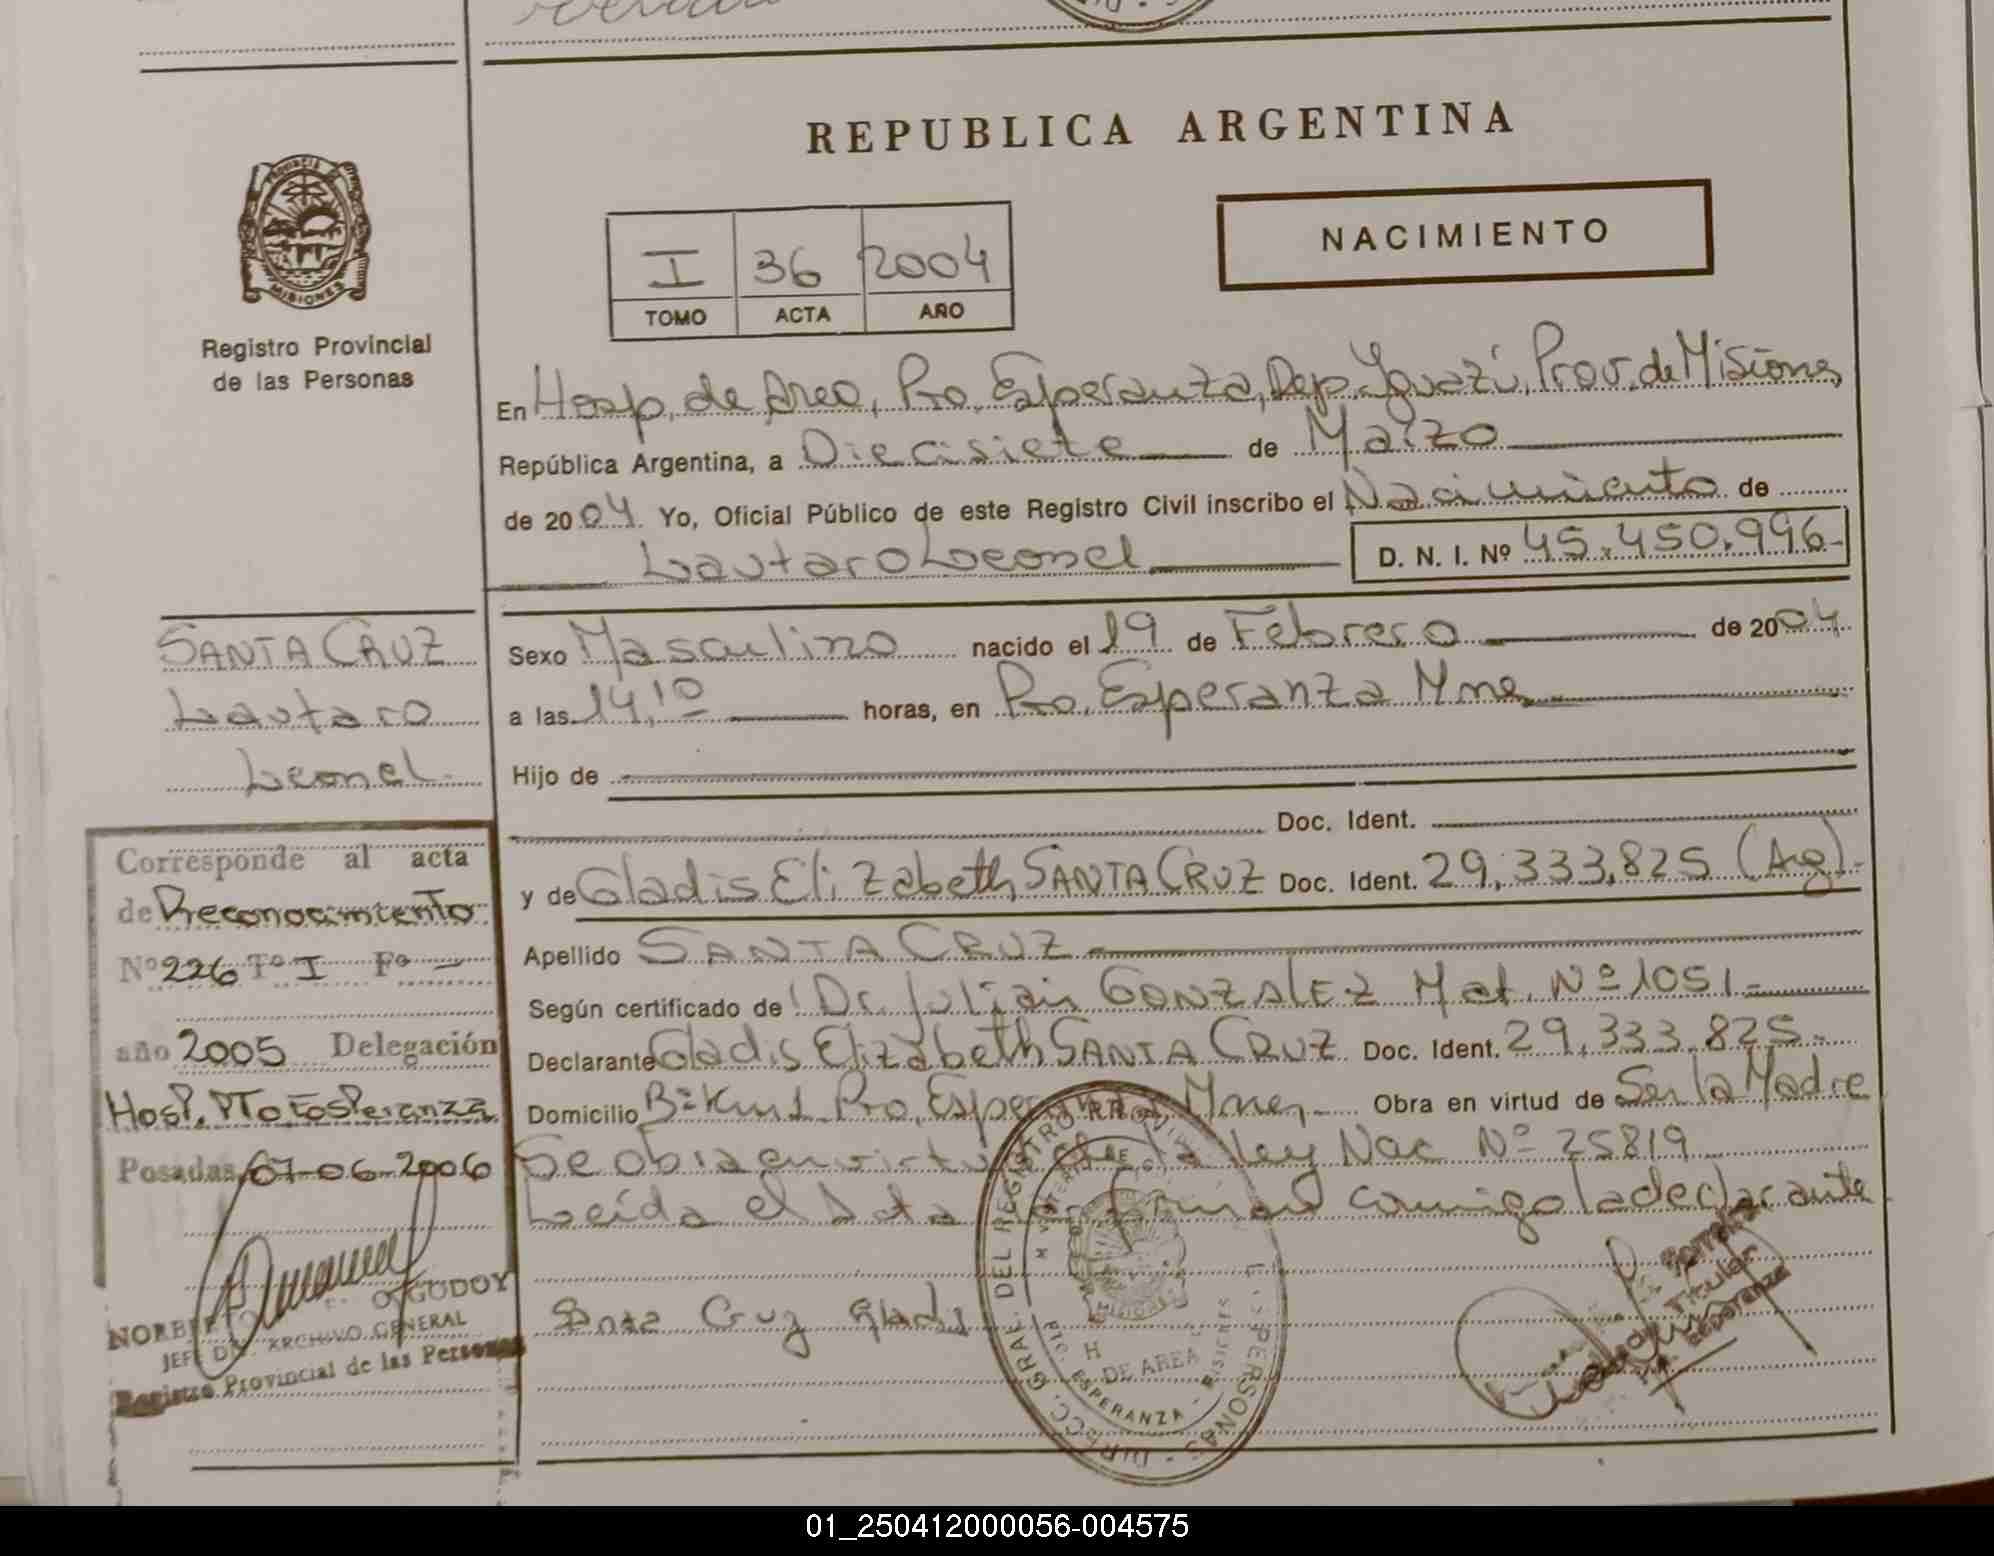 REPUBLICA ARGENTINA
MISIONES
Registro Provincial
de las Personas
I 36 2004
TOMO ACTA AÑO
NACIMIENTO
En Hosp. de Area, Pto. Esperanza, Dep. Iguazú, Prov. de Misiones
República Argentina, a Diecisiete de Marzo
de 2004 Yo, Oficial Público de este Registro Civil inscribo el Nacimiento de
Lautaro Leonel D. N. I. Nº 45.450.996-
SANTA CRUZ
Lautaro
Leonel.
Sexo Masculino nacido el 19 de Febrero de 2004
a las 14,10 horas, en Pto. Esperanza Mnes
Hijo de
Doc. Ident.
y de Gladis Elizabeth SANTA CRUZ Doc. Ident. 29.333.825 (Ag).-
Apellido SANTA CRUZ
Según certificado de Dr. Julián GONZALEZ Mat. Nº 1051-
Declarante Gladis Elizabeth SANTA CRUZ Doc. Ident. 29.333.825.-
Domicilio Bº Km 1 Pto. Esperanza, Mnes,- Obra en virtud de Ser la Madre
Se obra en virtud de la ley Nac Nº 25819
Leída el Acta firma comigo la declarante
Santa Cruz Gladis
Corresponde al acta
de Reconocimiento
Nº 226 Tº I Fº -
año 2005 Delegación
Hosp. Pto Esperanza
Posadas, 07-06-2006
NORBERTO GODOY
JEFE DIV. ARCHIVO GENERAL
Registro Provincial de las Personas
DIRECC. GRAL. DEL REGISTRO PROVINCIAL DE LAS PERSONAS
MISIONES
H DE AREA
PTO. ESPERANZA - MISIONES
Titular
Esperanza
01_250412000056-004575